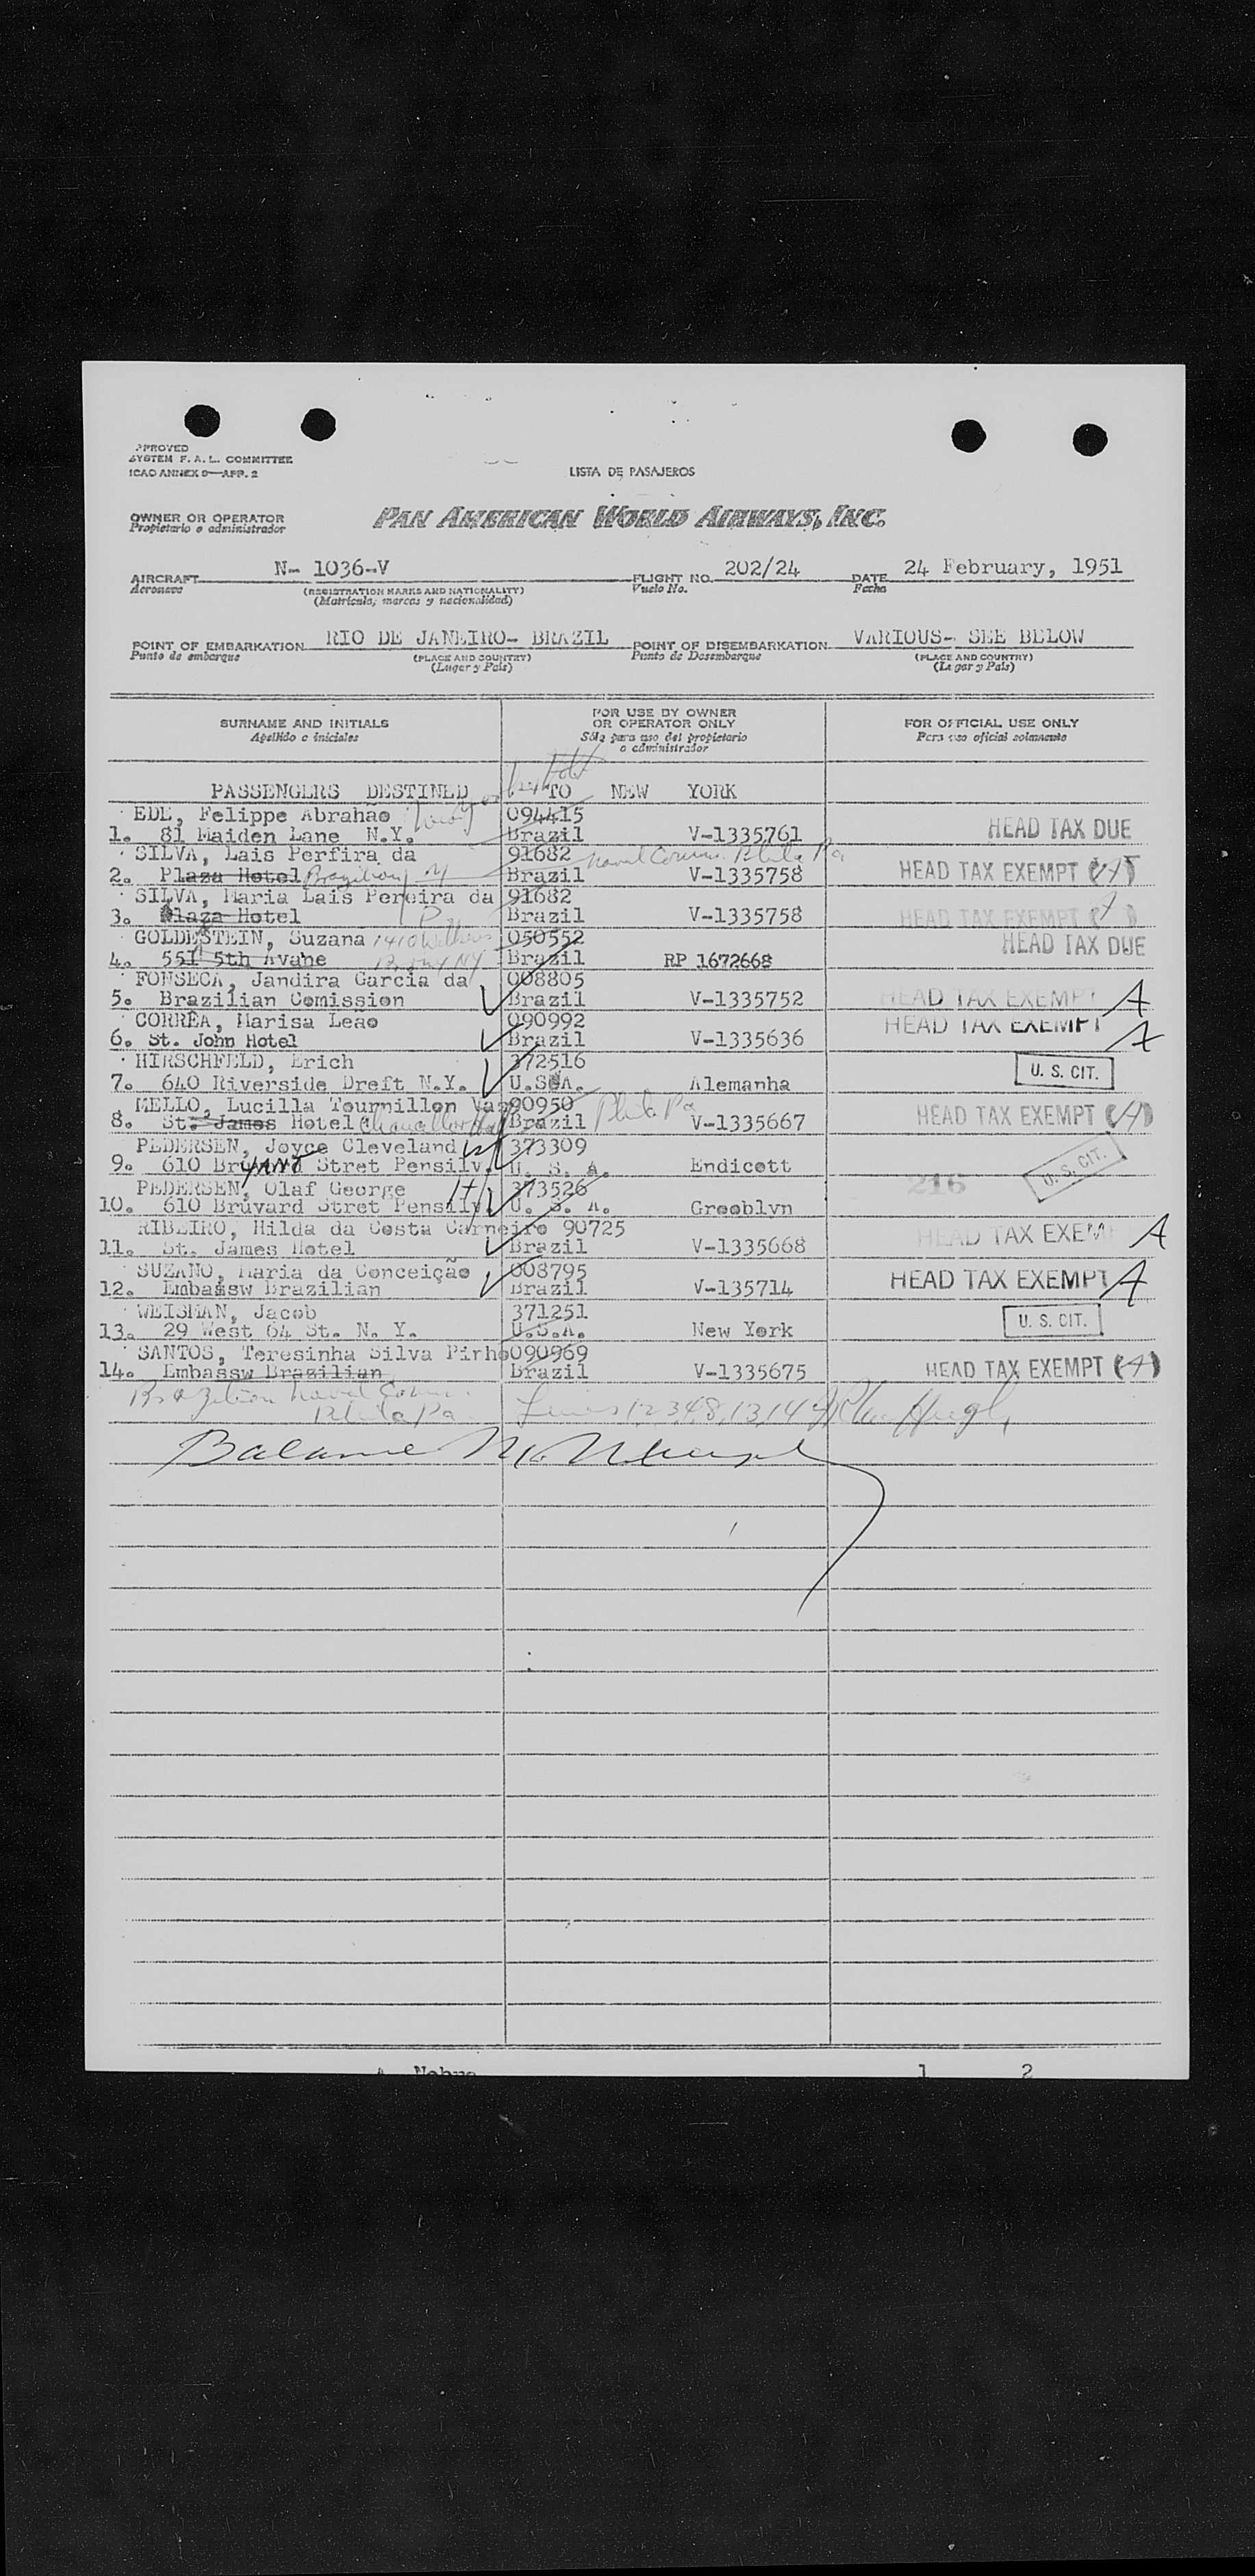 APPROVED
SYSTEM F. A. L. COMMITTEE
ICAO ANNEX 9—APP. 2
LISTA DE PASAJEROS
OWNER OR OPERATOR
Propietario o administrador
PAN AMERICAN WORLD AIRWAYS, INC.
AIRCRAFT N- 1036-V FLIGHT NO. 202/24 DATE 24 February, 1951
Aeronave (REGISTRATION MARKS AND NATIONALITY) Vuelo No. Fecha
(Matricula, marcas y nacionalidad)
POINT OF EMBARKATION RIO DE JANEIRO- BRAZIL POINT OF DISEMBARKATION VARIOUS- SEE BELOW
Punto de embarque (PLACE AND COUNTRY) Punto de Desembarque (PLACE AND COUNTRY)
(Lugar y País) (Lugar y País)
SURNAME AND INITIALS FOR USE BY OWNER OR OPERATOR ONLY FOR OFFICIAL USE ONLY
Apellido e iniciales Sólo para uso del propietario o administrador Para uso oficial solamente
PASSENGERS DESTINED TO NEW YORK
EDE, Felippe Abrahão 094415
1. 81 Maiden Lane N.Y. Brazil V-1335761 HEAD TAX DUE
SILVA, Lais Perfira da 91682 Naval Comm. Phila Pa
2. Plaza Hotel Brazilian Brazil V-1335758 HEAD TAX EXEMPT (A)
SILVA, Maria Lais Pereira da 91682
3. Plaza Hotel Brazil V-1335758 HEAD TAX EXEMPT
GOLDESTEIN, Suzana 1410 050552 HEAD TAX DUE
4. 551 5th Avahe NY Brazil RP 1672668
FONSECA, Jandira Garcia da 008805
5. Brazilian Comission Brazil V-1335752 HEAD TAX EXEMPT A
CORRÊA, Marisa Leão 090992 HEAD TAX EXEMPT
6. St. John Hotel Brazil V-1335636 A
HIRSCHFELD, Erich 372516
7. 640 Riverside Dreft N.Y. U.SUA. Alemanha U. S. CIT.
MELLO, Lucilla Tournillon Vas 90950 Phila Pa
8. St. James Hotel Chancellor Hall Brazil V-1335667 HEAD TAX EXEMPT (A)
PEDERSEN, Joyce Cleveland 373309
9. 610 BrYANT Stret Pensilv. U. S. A. Endicott U.S. CIT.
PEDERSEN, Olaf George 373526 216
10. 610 Bruvard Stret Pensilv. U. S. A. Greoblyn
RIBEIRO, Hilda da Costa Carneiro 90725
11. St. James Hotel Brazil V-1335668 HEAD TAX EXEM A
SUZANO, Maria da Conceição 008795
12. Embassw Brazilian Brazil V-135714 HEAD TAX EXEMPT A
WEISMAN, Jacob 371251
13. 29 West 64 St. N. Y. U.S.A. New York U. S. CIT.
SANTOS, Teresinha Silva Pinho 090969
14. Embassw Brazilian Brazil V-1335675 HEAD TAX EXEMPT (A)
Brazilian Naval Comm.
Phila Pa. Lines 1,2,3,4,8,13,14
Balance
1 2